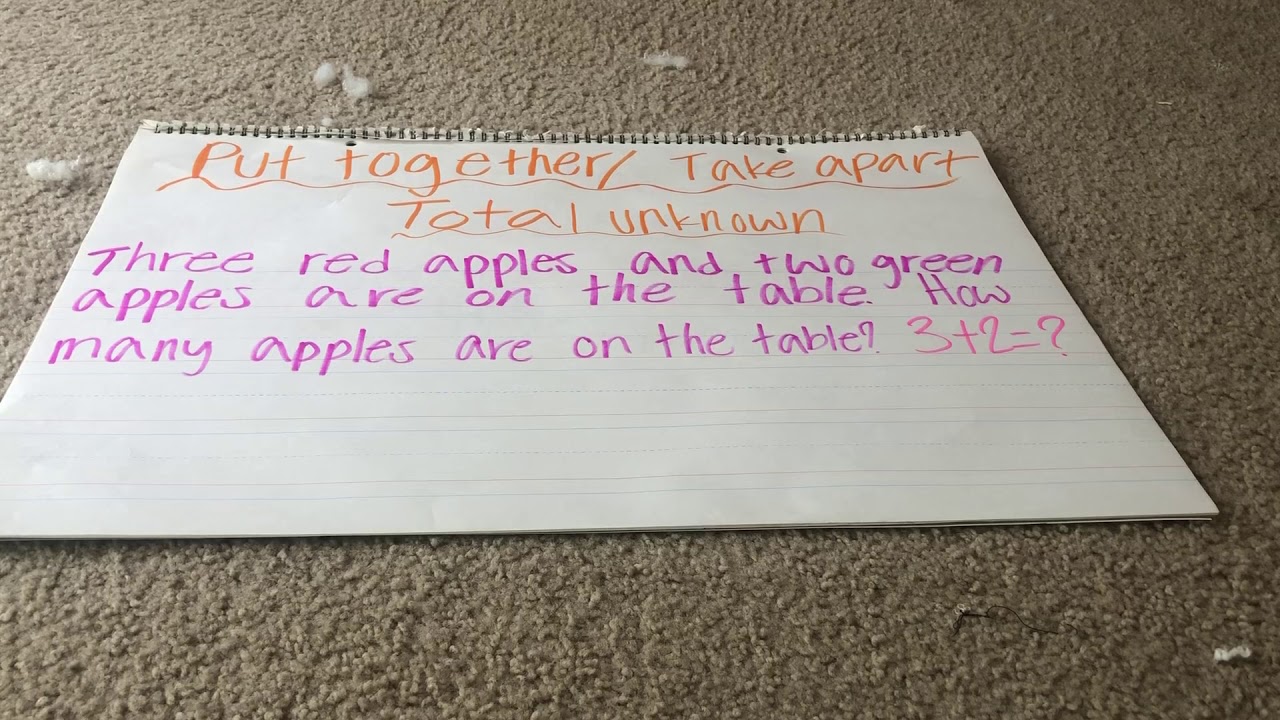 Put together/ Take apart
Total unknown
Three red apples and two green
apples are on the table. How
many apples are on the table? 3+2=?